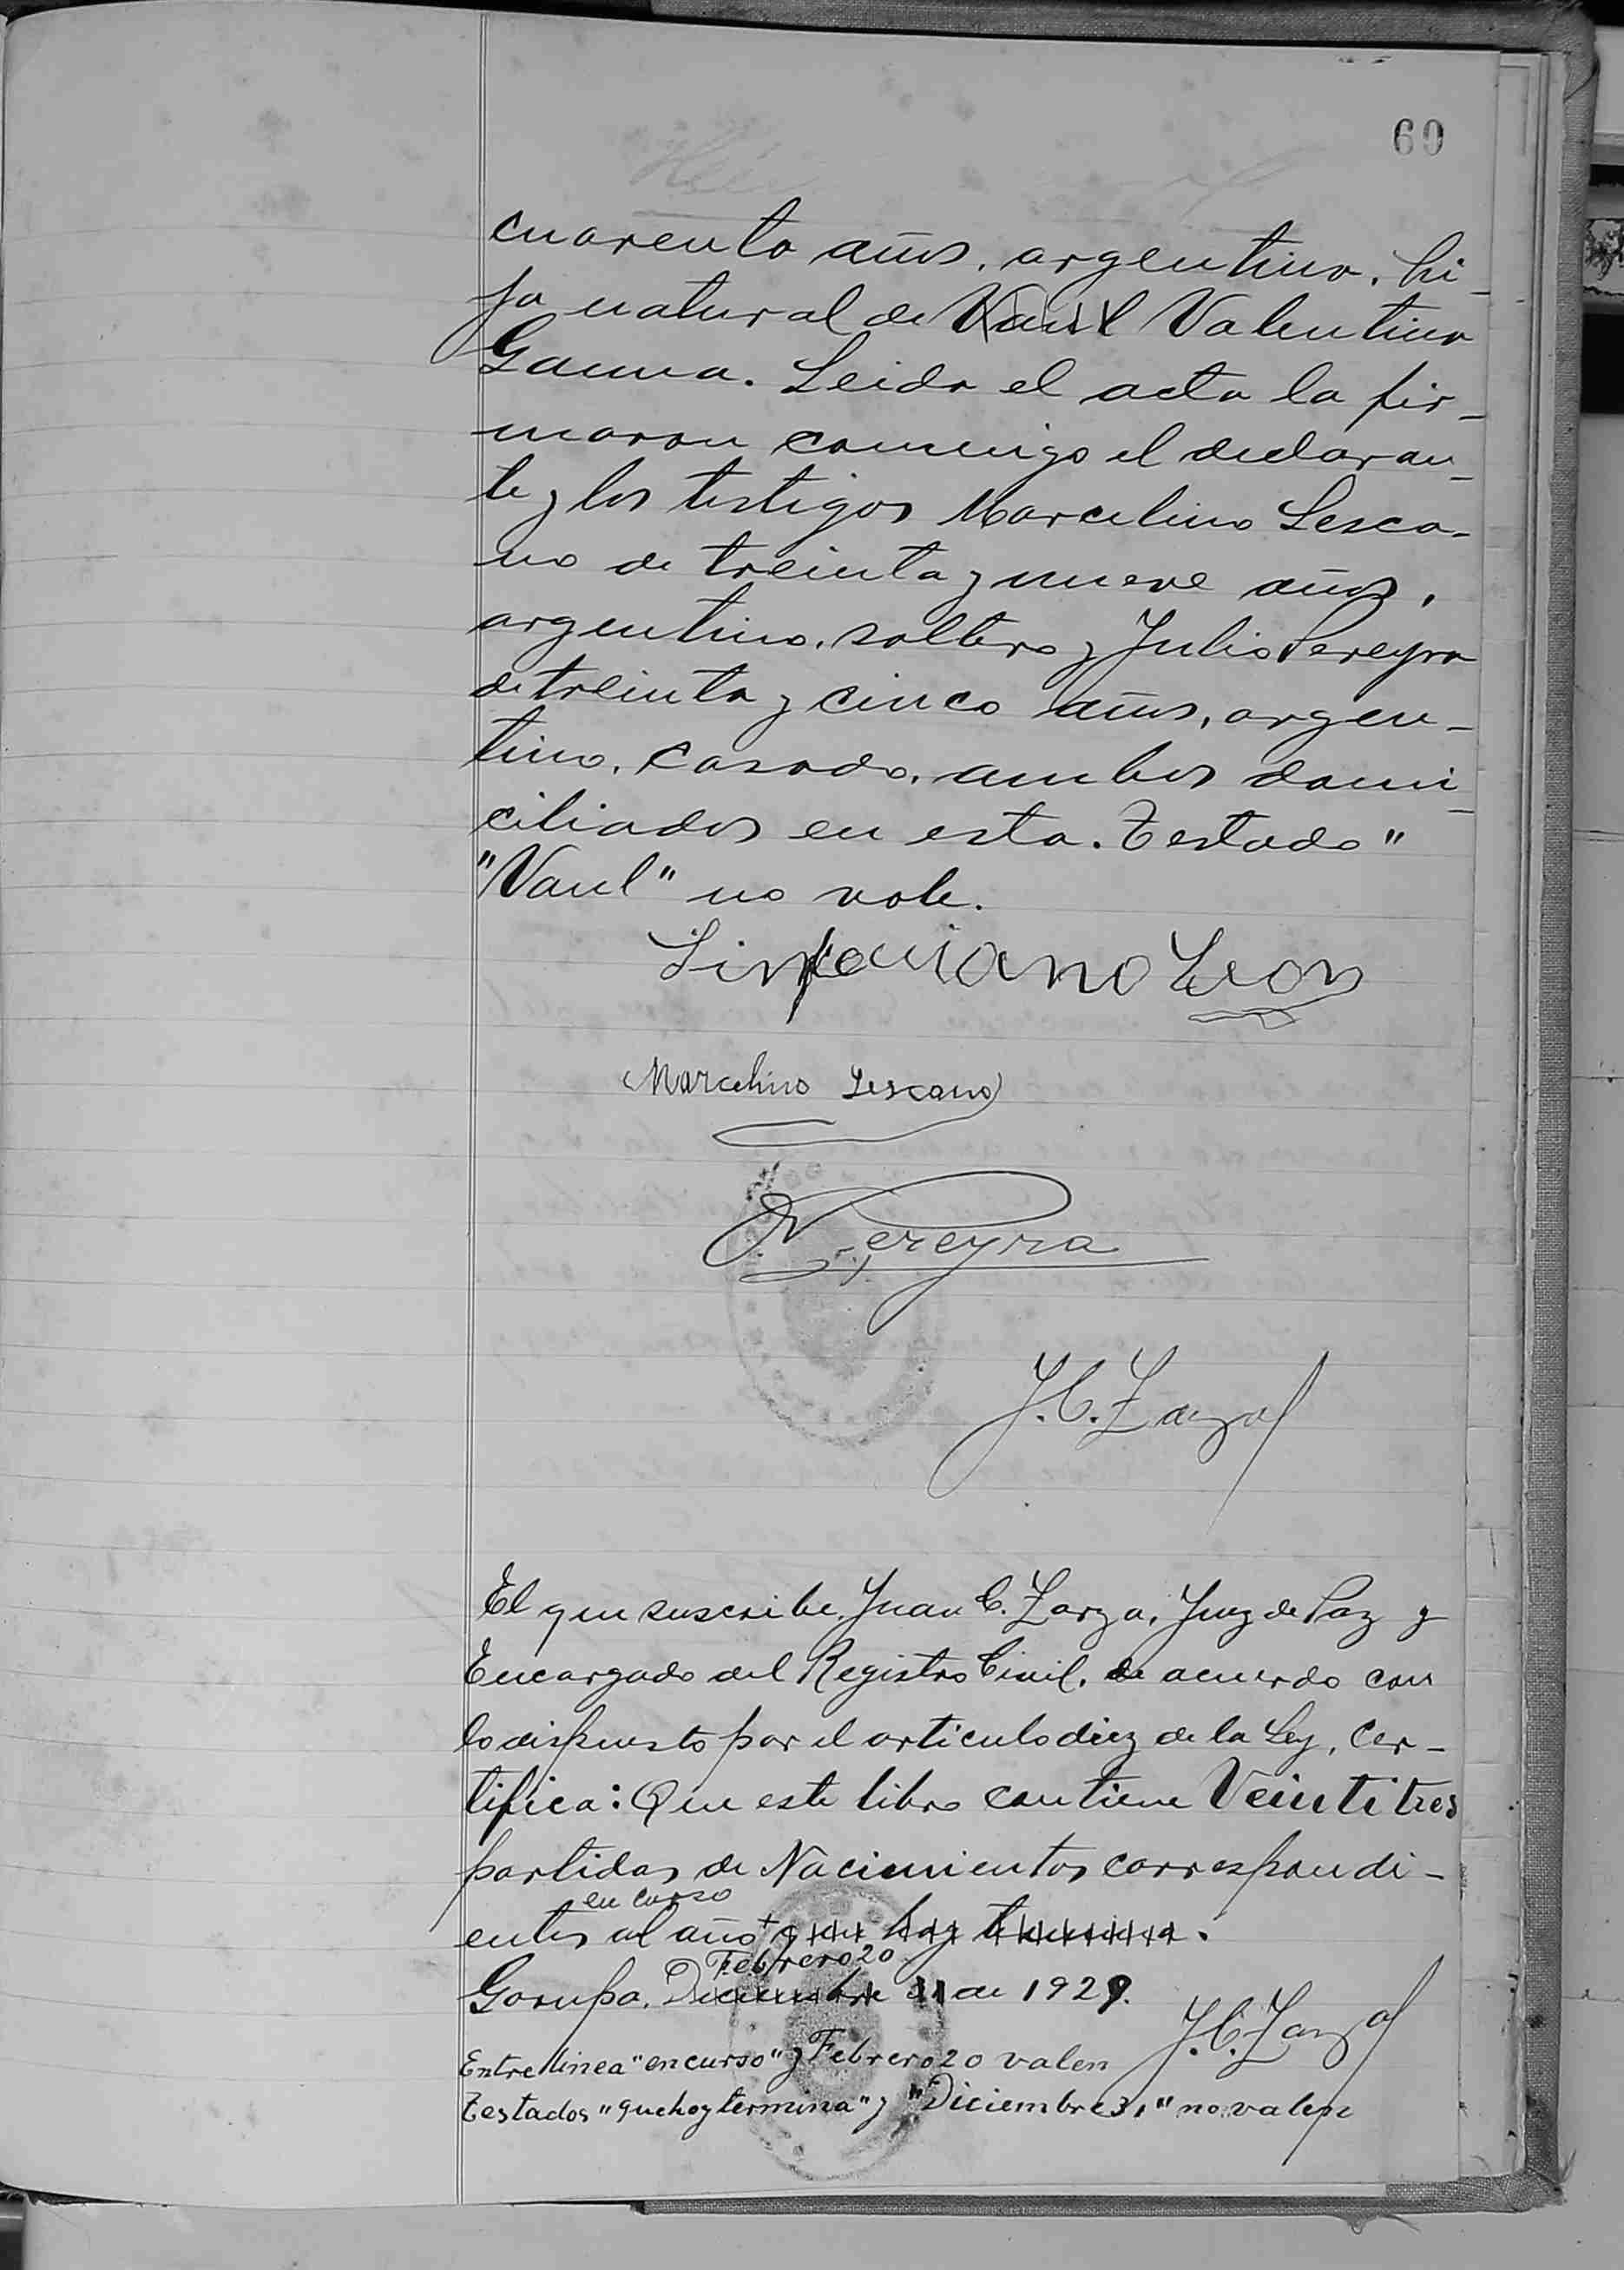 60
cuarenta años, argentina, hi-
ja natural de Vaul Valentina
Gauna. Leida el acta la fir-
maron conmigo el declaran-
te y los testigos Marcelino Lesca-
no de treinta y nueve años,
argentino, soltero y Julio Pereyra
de treinta y cinco años, argen-
tino, casado, ambos domi-
ciliados en esta. Testado"
"Vaul" no vale.
Sinforiano Leon
Marcelino Lescano
Pereyra
J. C. Zarza
El que suscribe, Juan C. Zarza, Juez de Paz y
Encargado del Registro Civil, de acuerdo con
lo dispuesto por el articulo diez de la Ley, Cer-
tifica: Que este libro contiene Veintitres
partidas de Nacimientos correspondi-
en curso
entes al año + que hoy termina.
Febrero 20
Garupa, Diciembre 31 de 1929.
J. C. Zarza
Entre linea "en curso" y Febrero 20 valen
Testados "que hoy termina" y "Diciembre 31" no valen